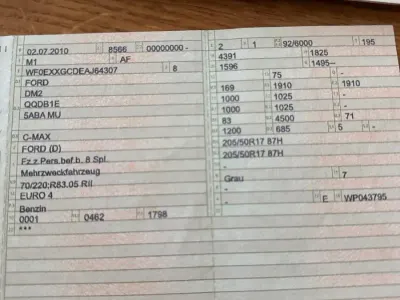 02.07.2010 8566 00000000 -
M1 AF
WF0EXXGCDEAJ64307 8
FORD
DM2
QQDB1E
5ABA MU
C-MAX
FORD (D)
Fz.z.Pers.bef.b. 8 Spl.
Mehrzweckfahrzeug
70/220;R83.05 RII
EURO 4
Benzin
0001 0462 1798
***
2 1 92/6000 195
4391 1825
1596 1495--
75 -
169 1910 1910
1000 1025 -
1000 1025 -
83 4500 71
1200 685 5 -
205/50R17 87H
205/50R17 87H
-
Grau 7
-
- E WP043795